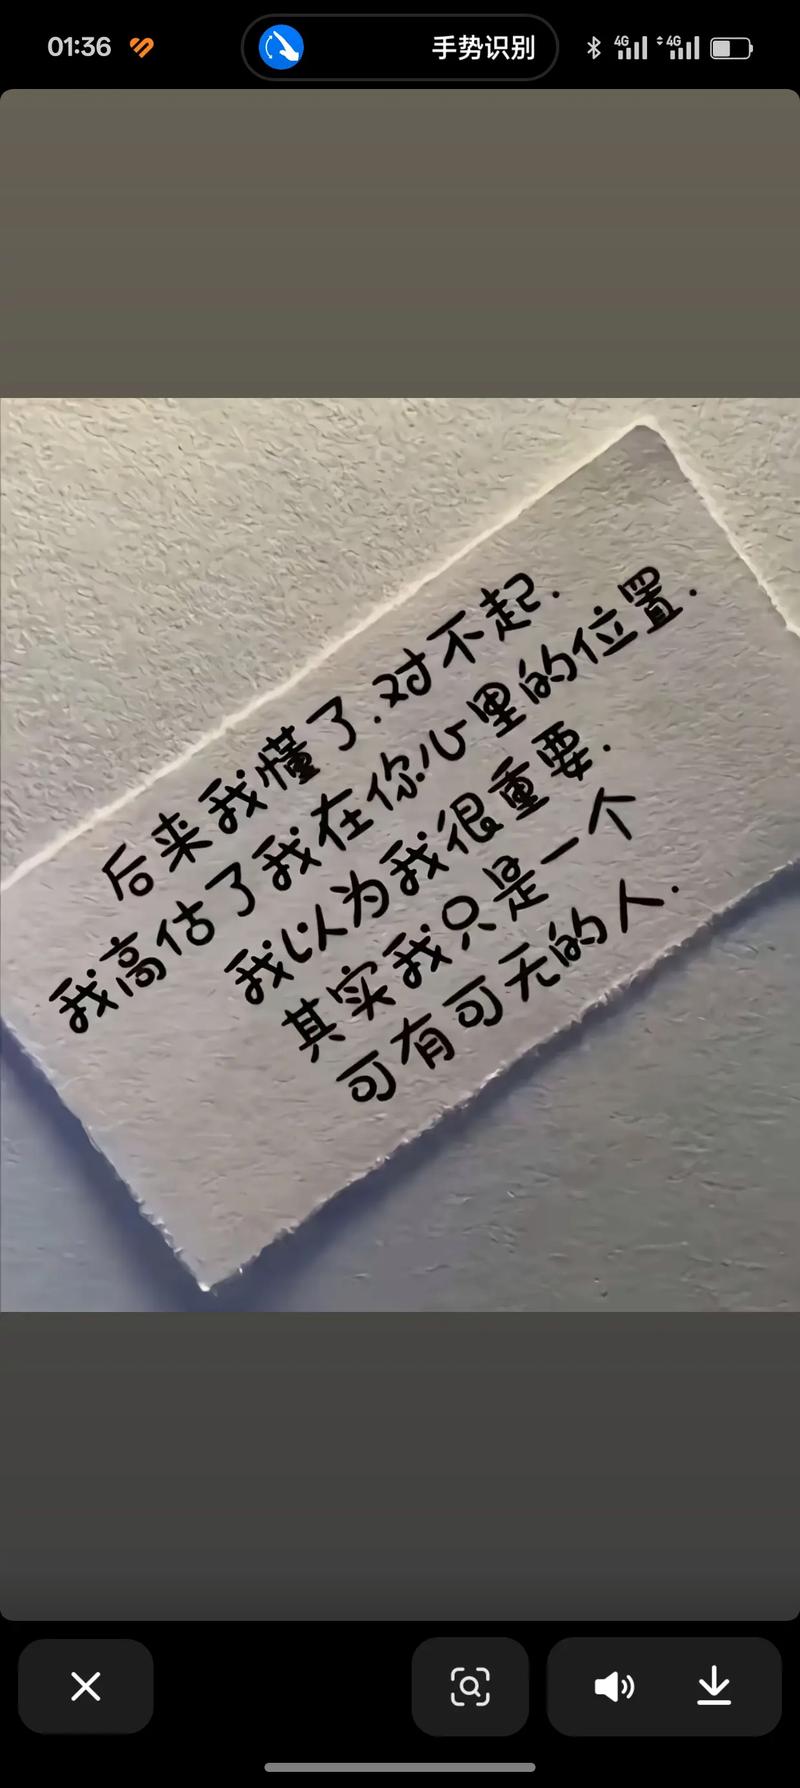 01:36
手势识别
4G
4G
后来我懂了.对不起.
我高估了我在你心里的位置.
我以为我很重要.
其实我只是一个
可有可无的人.